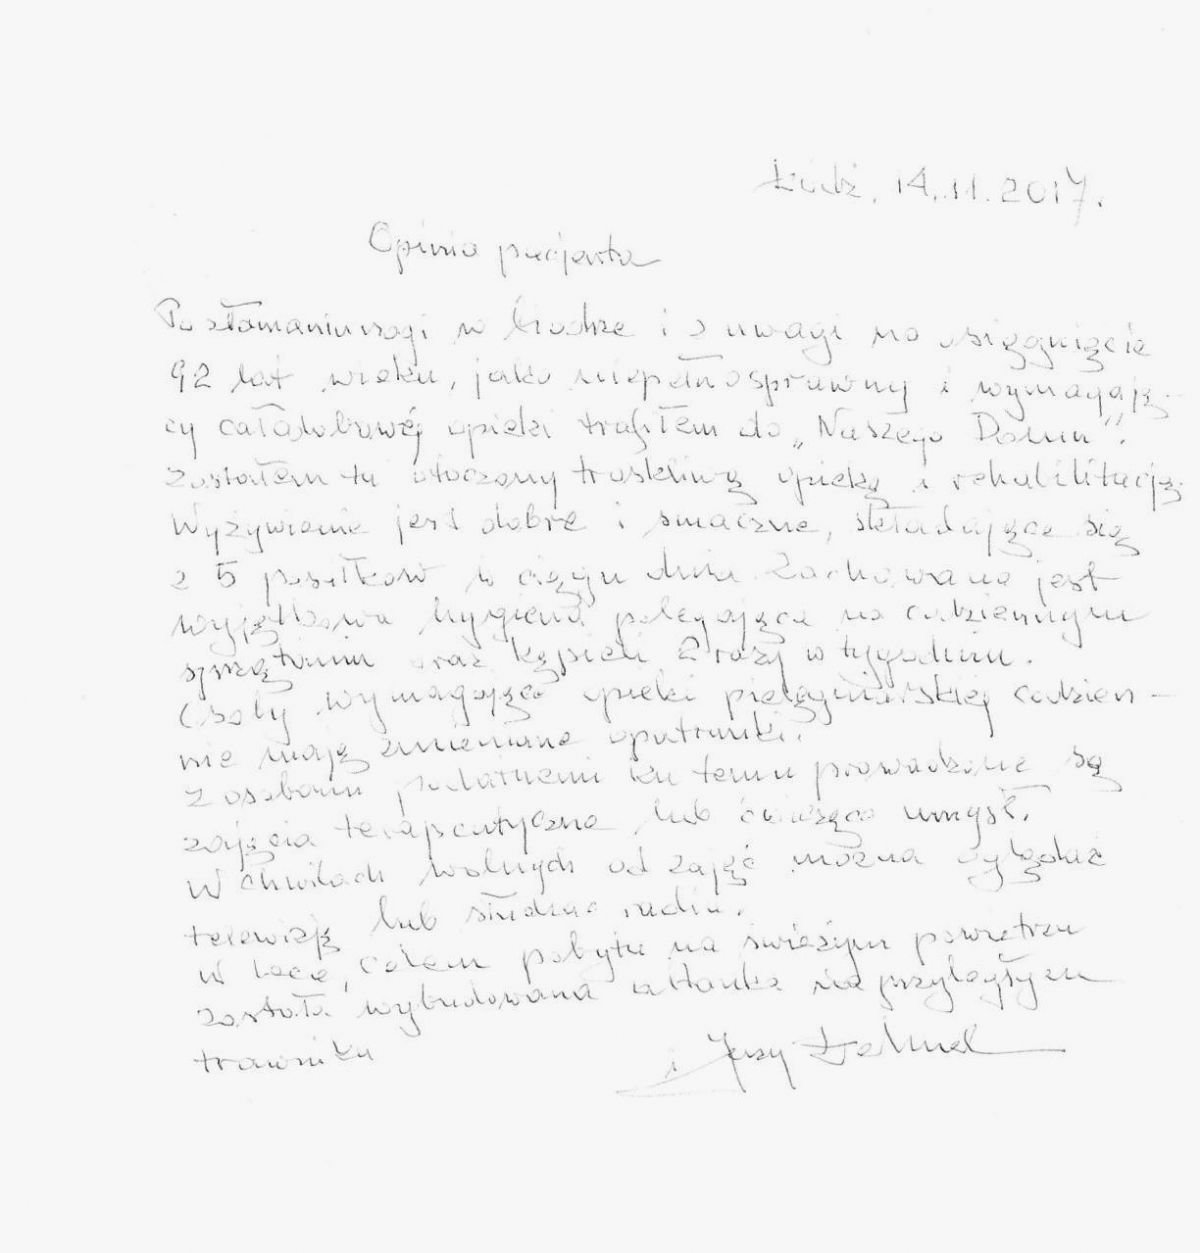 Łódź, 14.11.2017.
Opinia pacjenta
Po złamaniu nogi w biodrze i z uwagi na osiągnięcie
92 lat wieku, jako niepełnosprawny i wymagają-
cy całodobowej opieki trafiłem do „Naszego Domu".
Zostałem tu otoczony troskliwą opieką i rehabilitacją.
Wyżywienie jest dobre i smaczne, składające się
z 5 posiłków w ciągu dnia. Zachowana jest
wyjątkowa hygiena polegająca na codziennym
sprzątaniu oraz kąpieli 2 razy w tygodniu.
Osoby wymagające opieki pielęgniarskiej codzien-
nie mają zmieniane opatrunki.
Z osobami podatnemi ku temu prowadzone są
zajęcia terapeutyczne lub ćwiczące umysł.
W chwilach wolnych od zajęć można oglądać
telewizję lub słuchać radia.
W lecie, celem pobytu na świeżym powietrzu
została wybudowana altanka na przyległym
trawniku
Jerzy